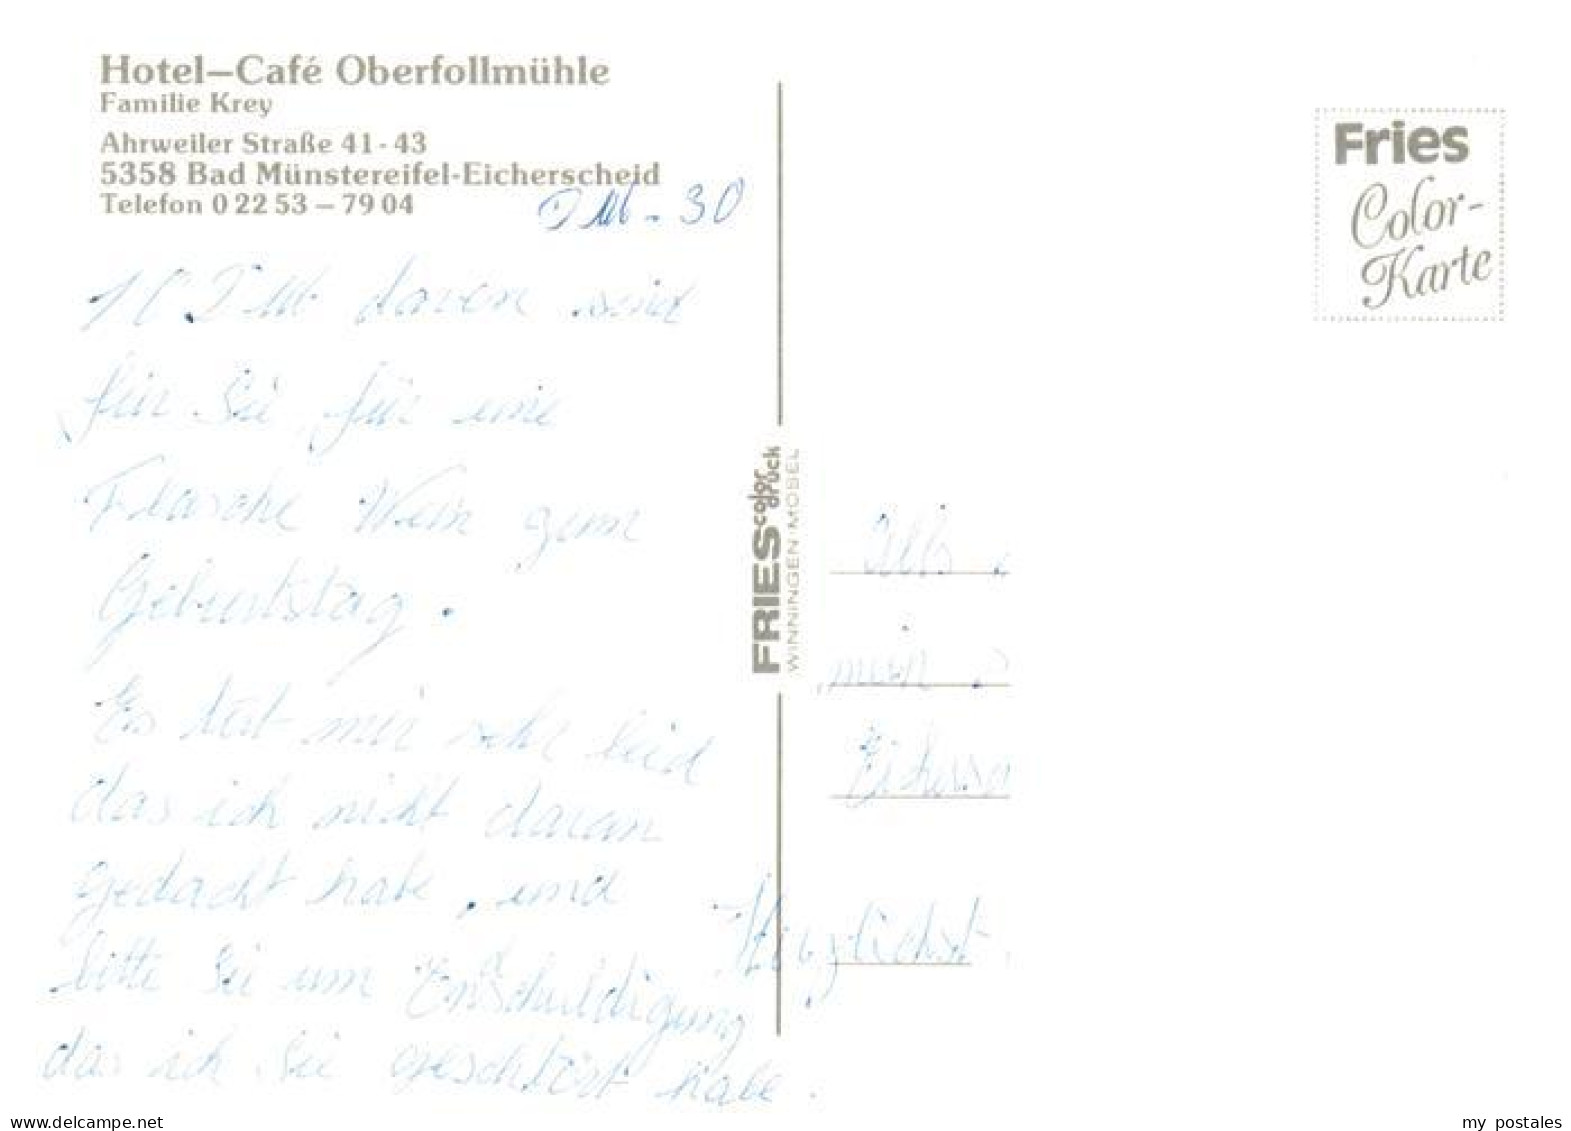 Hotel–Café Oberfollmühle
Familie Krey
Ahrweiler Straße 41-43
5358 Bad Münstereifel-Eicherscheid
Telefon 0 22 53 – 79 04
DM. 30
10 DM daven sind
für Sie für eine
Flasche Wein zum
Geburtstag.
Es tut mir sehr leid
das ich nicht daran
gedacht habe, und
bitte Sie um Entschuldigung
das ich Sie geschtört habe.
FRIES color druck
WINNINGEN · MOSEL
Fries
Color-
Karte
Herzlichst
my postales